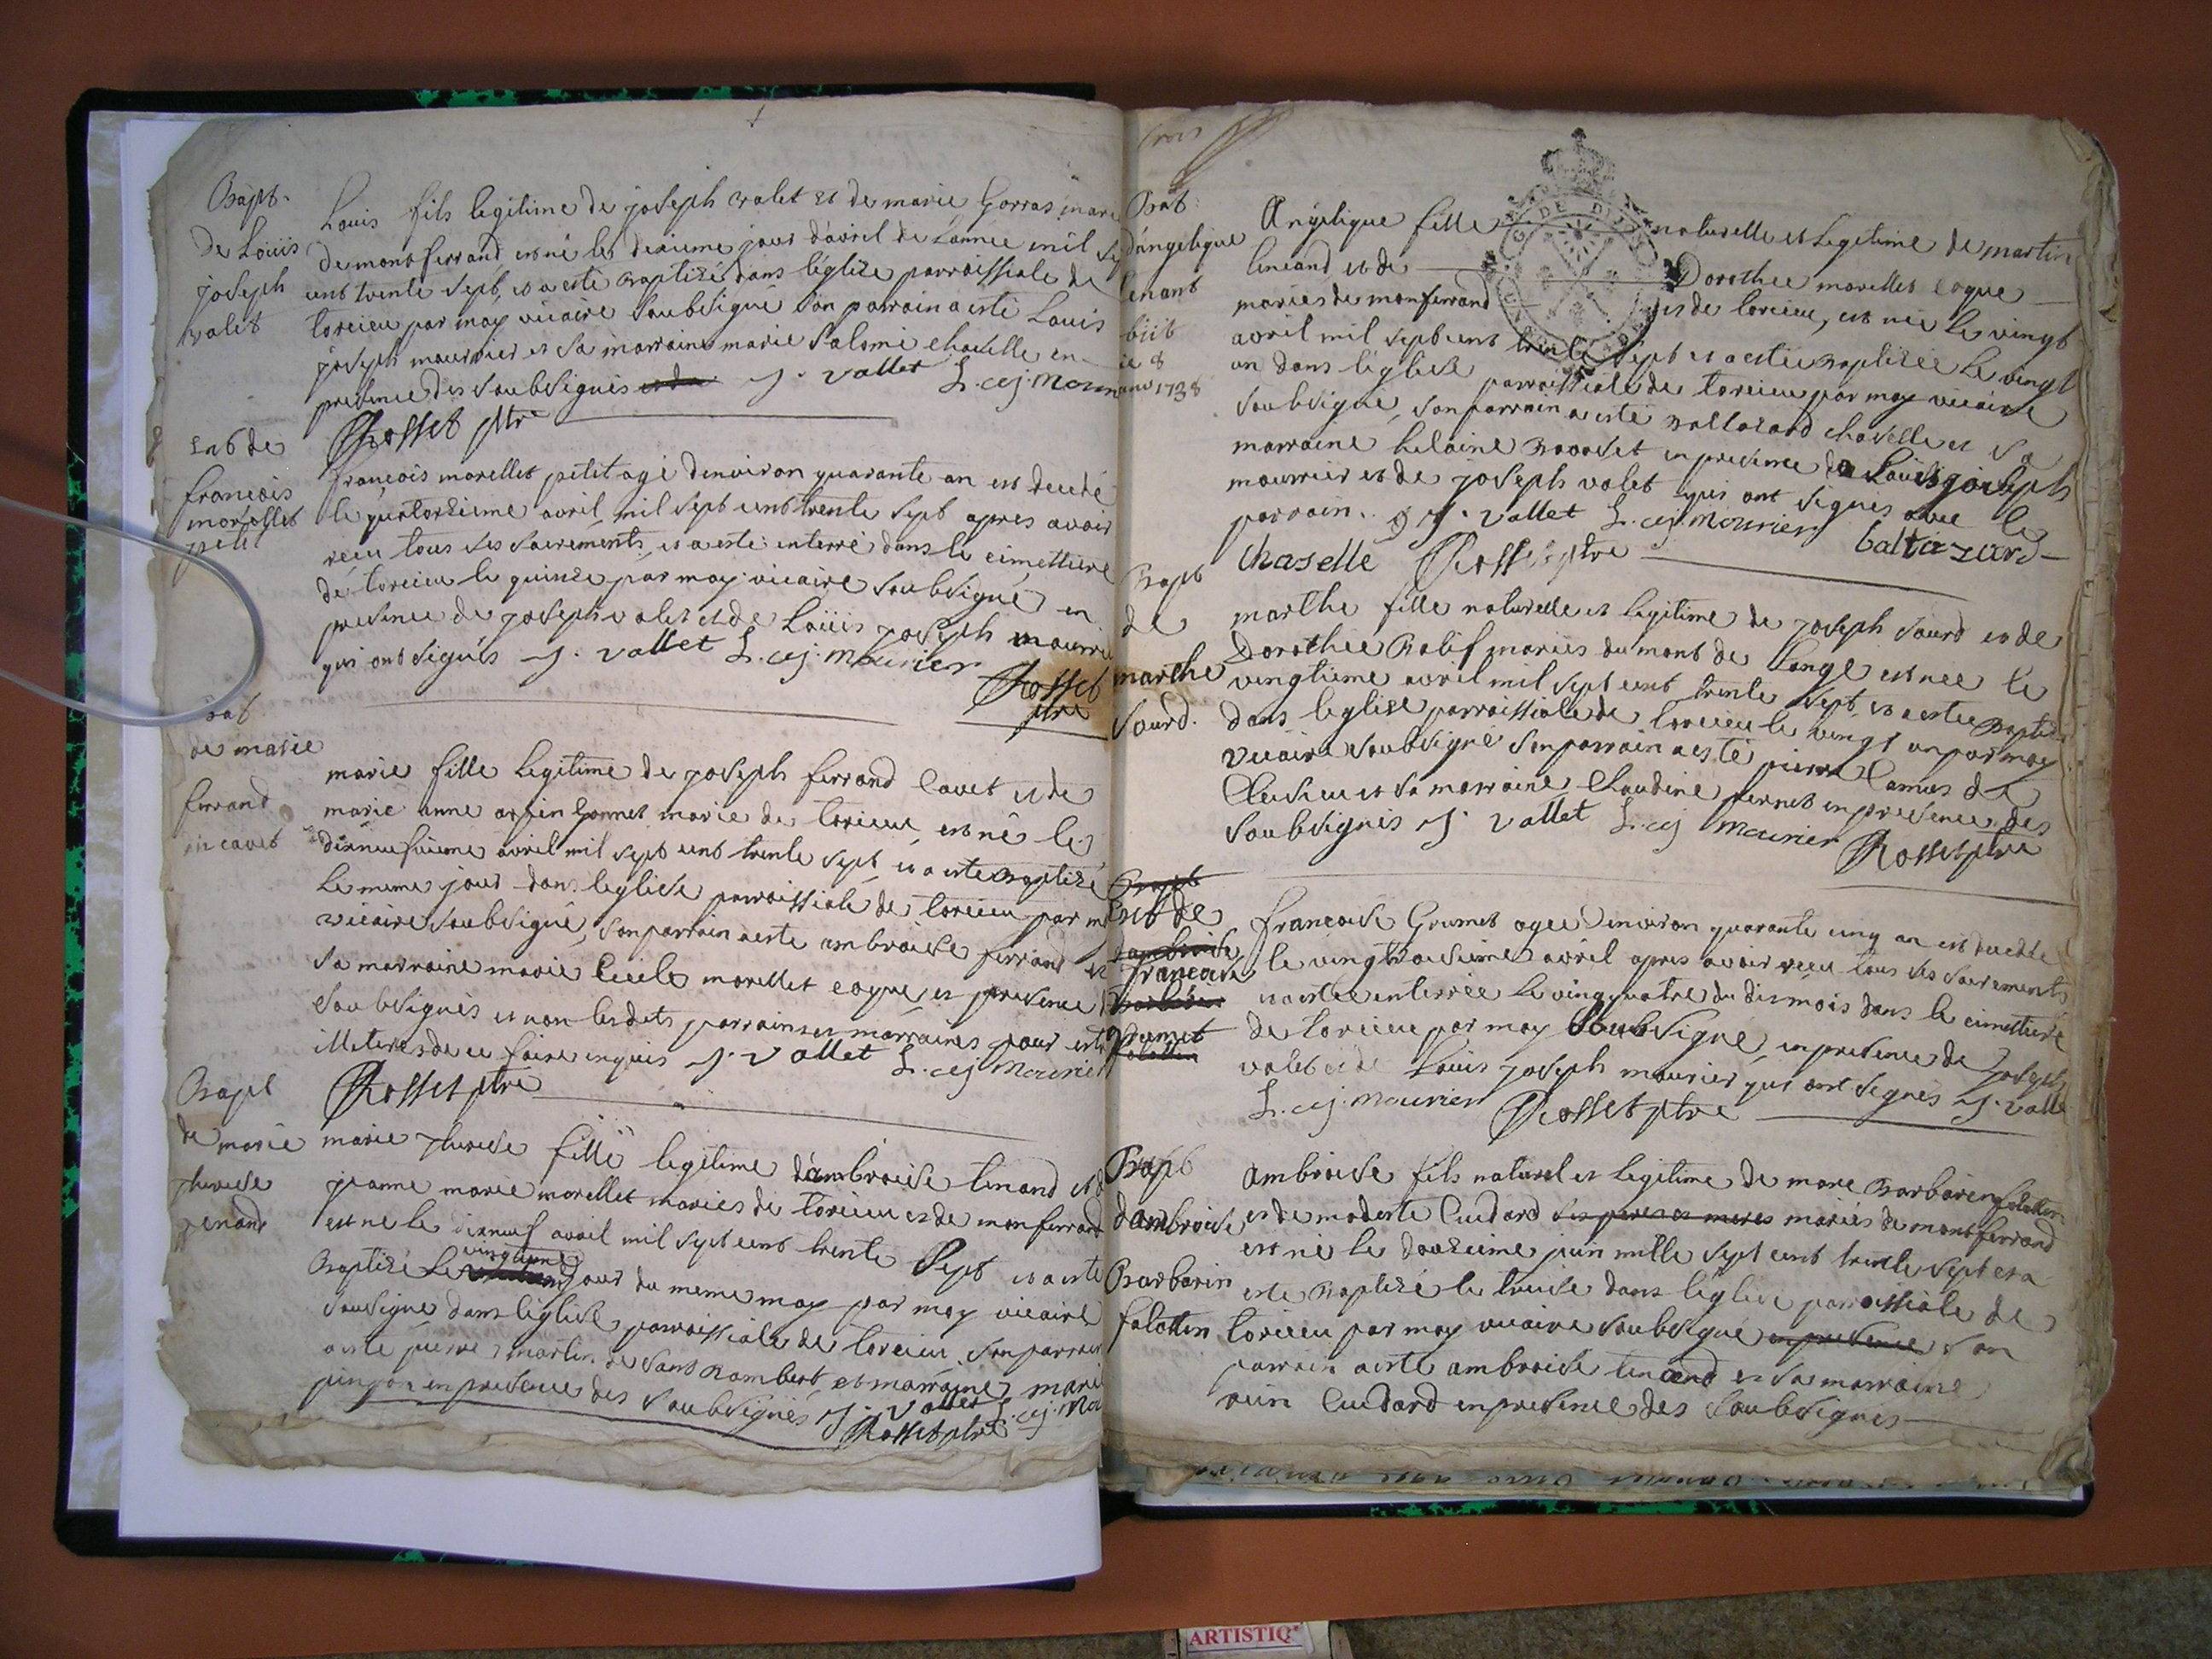 Bapt.
de Loüis
joseph
valet
Louis fils legitime de joseph valet et de marie Gorras marié
de montferrand est né le deusieme jour davril de Lannee mil
cent trente sept, et a esté Baptizé dans l'églize parroissiale de
torcieu par moy vicaire soubsigné son parrain a esté Louis
joseph mourrier et sa marraine marie Salomé chaselle en
presence des soubsignés J. vallet L. cej. Mourier
Rosset ptre
Ent de
francois
morellet
petit
francois morellet petit agé denviron quarante an est decedé
le quatorzieme avril mil sept cent trente sept apres avoir
reçu tous ses sacrements, et a esté interré dans le cimettiere
de torcieu le quinze par moy vicaire soubsigné en
presence de joseph valet et de Loüis joseph mourrier
qui ont signés J. vallet L. cej. Mourier
Rosset
ptre
Bat
de marie
ferrand
cavet
marie fille legitime de joseph ferrand cavet et de
marie anne orfin Gonnet marie de torcieu est né le
disneufuieme avril mil sept cent trente sept et a esté Baptizé
Le meme jour dans leglise parroissiale de torcieu par
vicaire soubsigné, son parrain a esté ambroise ferrand et
sa marraine marie Cecile morellet coque, et presence
soubsignés et non lesdits parrain et marraines pour estre
illeteres de ce faire enquis J. vallet L. cej Mourier
Rosset ptre
Bapt
de marie
therese
tenand
marie therese fille legitime d'ambroise tenand et
jeanne marie morellet mariés de torcieu et de monferrand
est ne le disneuf avril mil sept cent trente sept et a esté
Baptizé Le vingtieme jour du meme moy par moy vicaire
sousigné dans l'églize parroissiale de torcieu. son parrain
a esté pierre martin de sant Rambert, et marraine marie
pingon en presence des soubsignés J. vallet L. cej. Mo
Rosset ptre
trois
Bat
dangelique
tenant
1738
Angelique fille naturelle et Legitime de martin
tenand et de Dorothee morellet coque
mariés de monferrand de torcieu, est née le vingt
avril mil sept cent trente sept et a estée Baptizée le vingt
un dans l'églize parroissiale de torcieu par moy vicaire
soubsigné, son parrain a esté Baltazard chaselle et sa
marraine helaine Brosset en presence de Louis joiseph
mourrier et de joseph valet qui ont signés avec le
parrain. J. vallet L. cej. Mourier baltazard
Chazelle Rosset ptre
Bapt
de
marthe
Sourd.
marthe fille naturelle et legitime de joseph sourd et de
Dorothee Balif mariés du mont de Lange est nee le
vingtieme avril mil sept cent trente sept, et a estée Baptizée
dans leglise parroissiale de torcieu le vingt un par moy
vicaire soubsigné son parrain a esté pierre Camus de
Cleisieu et sa marraine Claudine fernet en presence des
soubsignés J. vallet L. cej Mourier
Rosset ptre
Bapt
Ent de
francoise
Grumet
francoise Grumet agée denviron quarante cinq an est decedée
le vingt troisieme avril apres avoir reçu tous ses sacrements
et a estée enterrée Le vingquatre du dis mois dans le cimettiere
de torcieu par moy soubsigné en presence de Joseph
valet et de Louis joseph mourier qui ont signés J. valle
L. cej. Mourier Rosset ptre
Bapt
dambroise
Barbarin
falatin
ambroise fils naturel et legitime de marc Barbarin falatin
et de modeste Cuidard ses peres et meres mariés de montferrand
est né le douzieme juin mille sept cent trente sept et a
esté Baptizé le treise dans l'église parroissiale de
torcieu par moy vicaire soubsigné en presence son
parrain a esté ambroise tenand et sa marraine
Cuidard en presence des soubsignés
ARTISTIQ